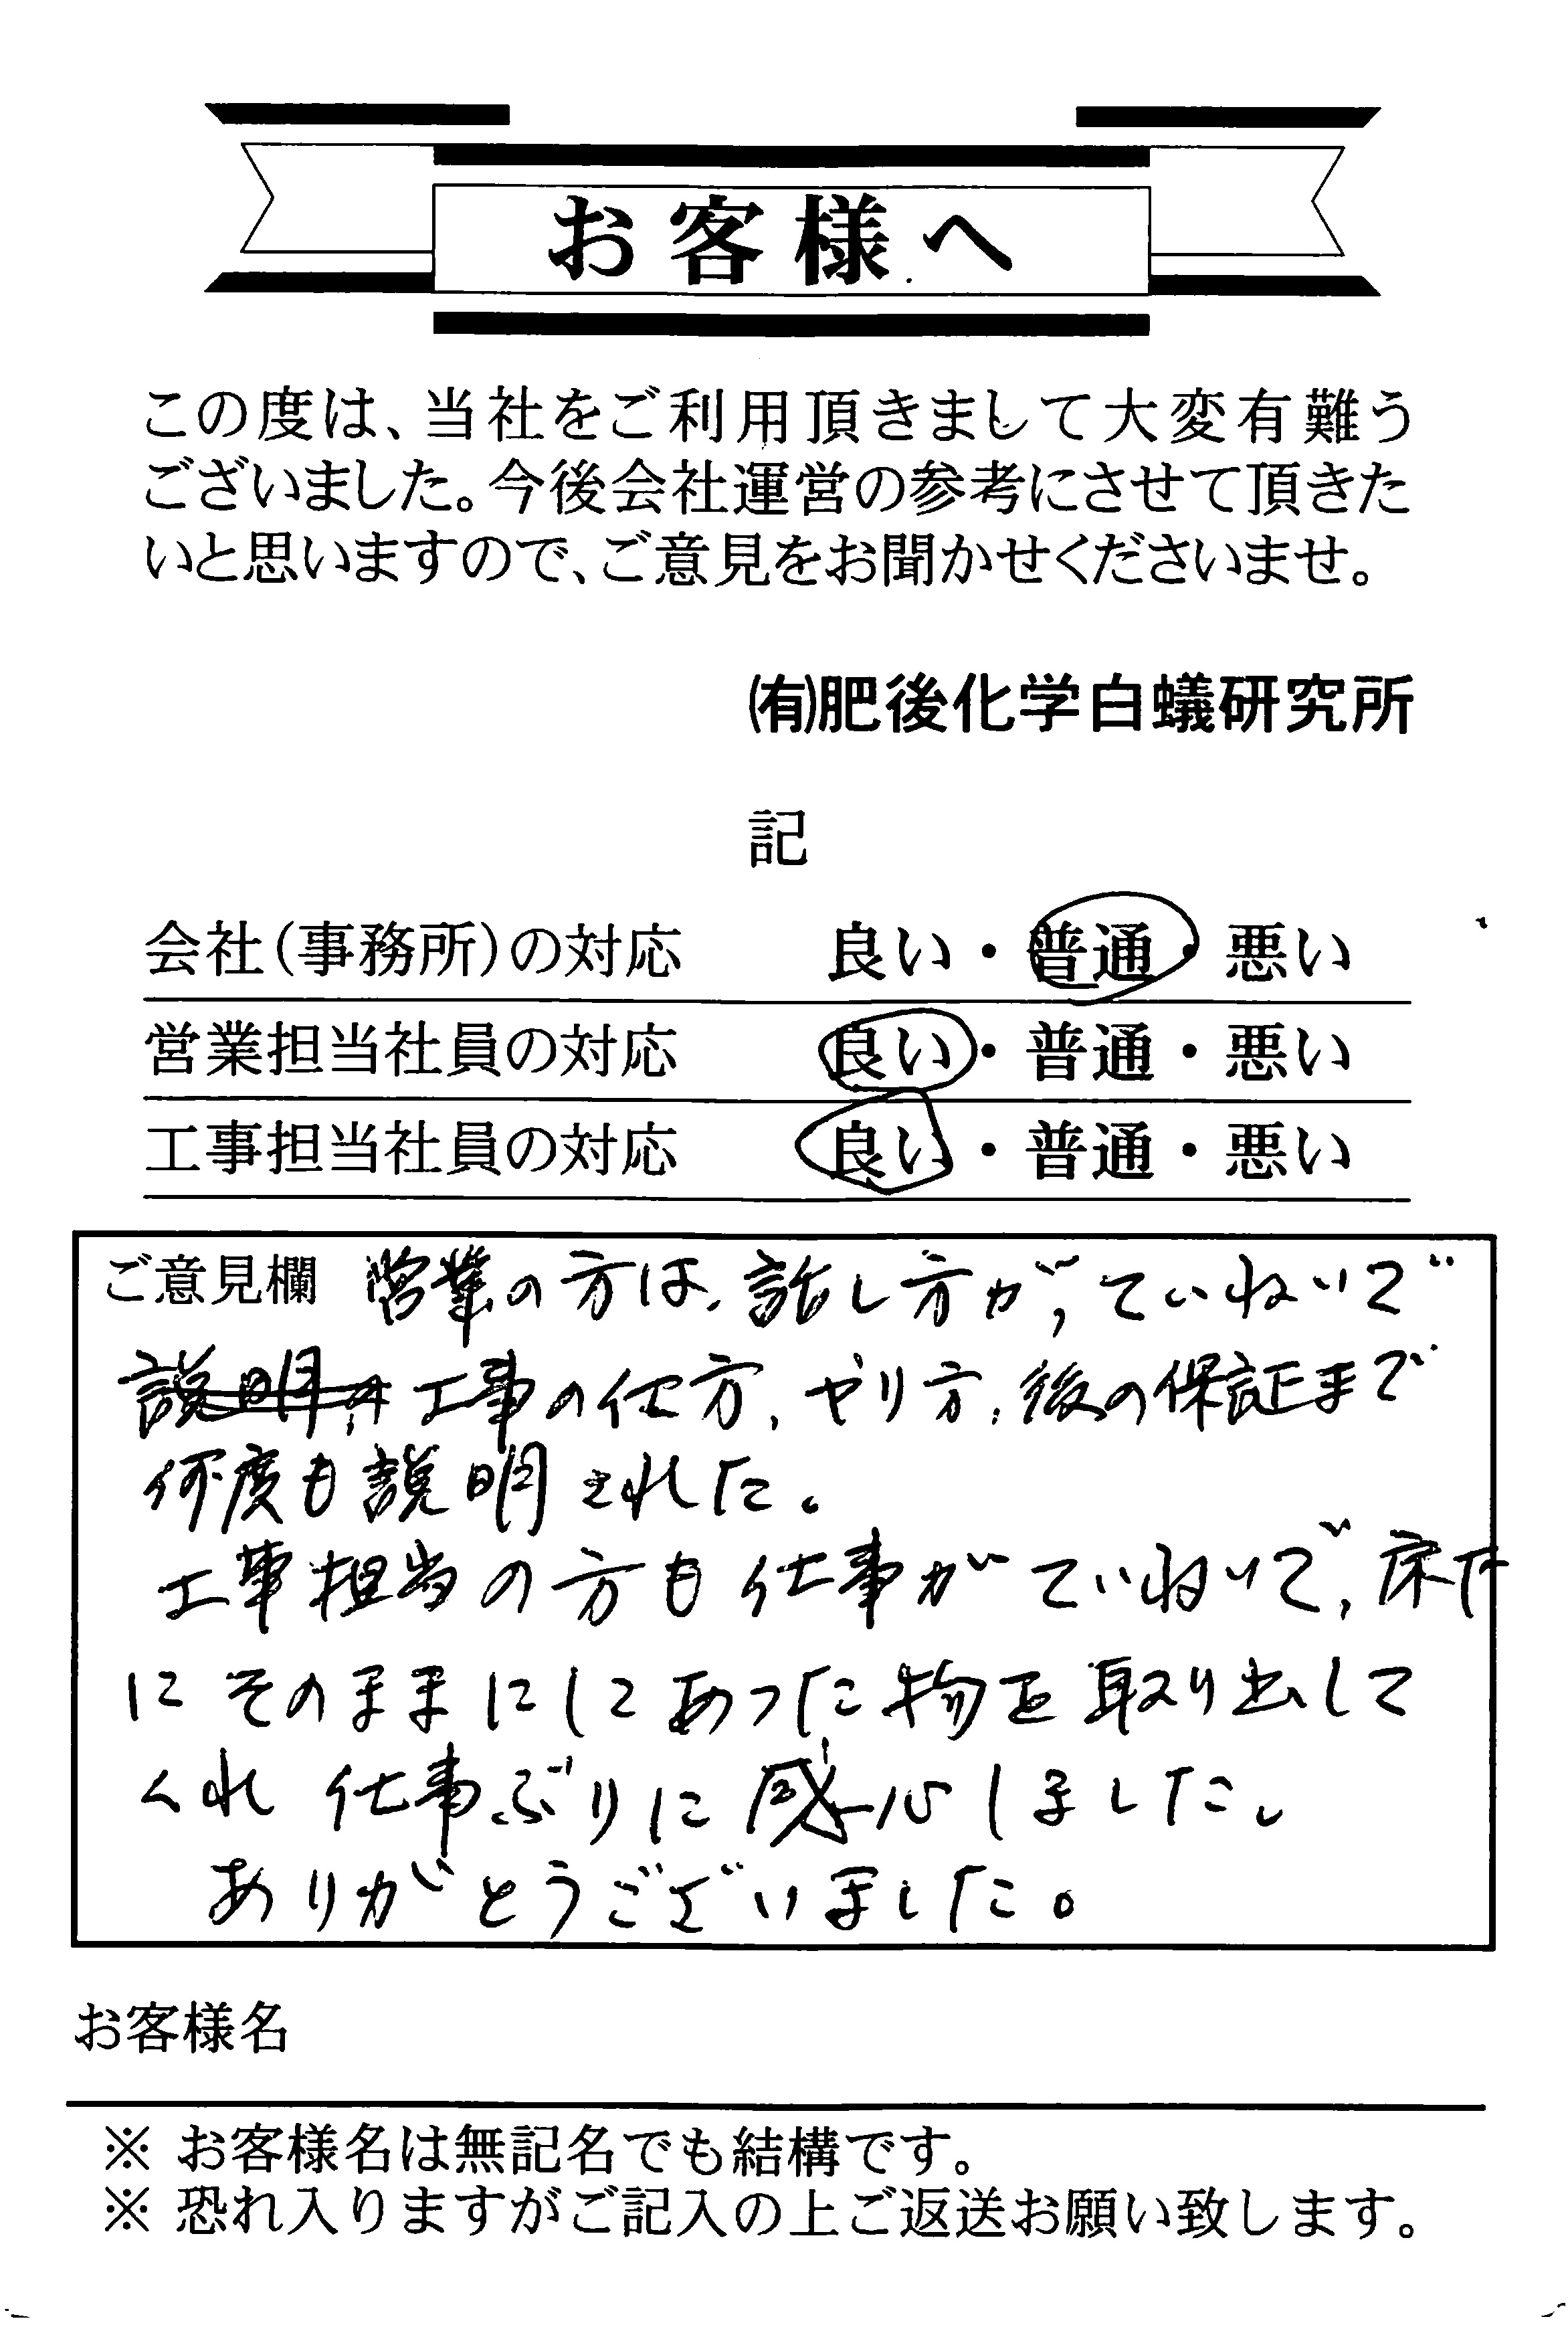 お客様へ
この度は、当社をご利用頂きまして大変有難う
ございました。今後会社運営の参考にさせて頂きた
いと思いますので、ご意見をお聞かせくださいませ。
㈲肥後化学白蟻研究所
記
会社(事務所)の対応 良い・普通・悪い
営業担当社員の対応 良い・普通・悪い
工事担当社員の対応 良い・普通・悪い
ご意見欄 営業の方は、話し方が、ていねいで
説明が工事の仕方、やり方、後の保証まで
何度も説明された。
工事担当の方も仕事がていねいで、床下
にそのままにしてあった物を取り出して
くれ 仕事ぶりに感心しました。
ありがとうございました。
お客様名
※ お客様名は無記名でも結構です。
※ 恐れ入りますがご記入の上ご返送お願い致します。